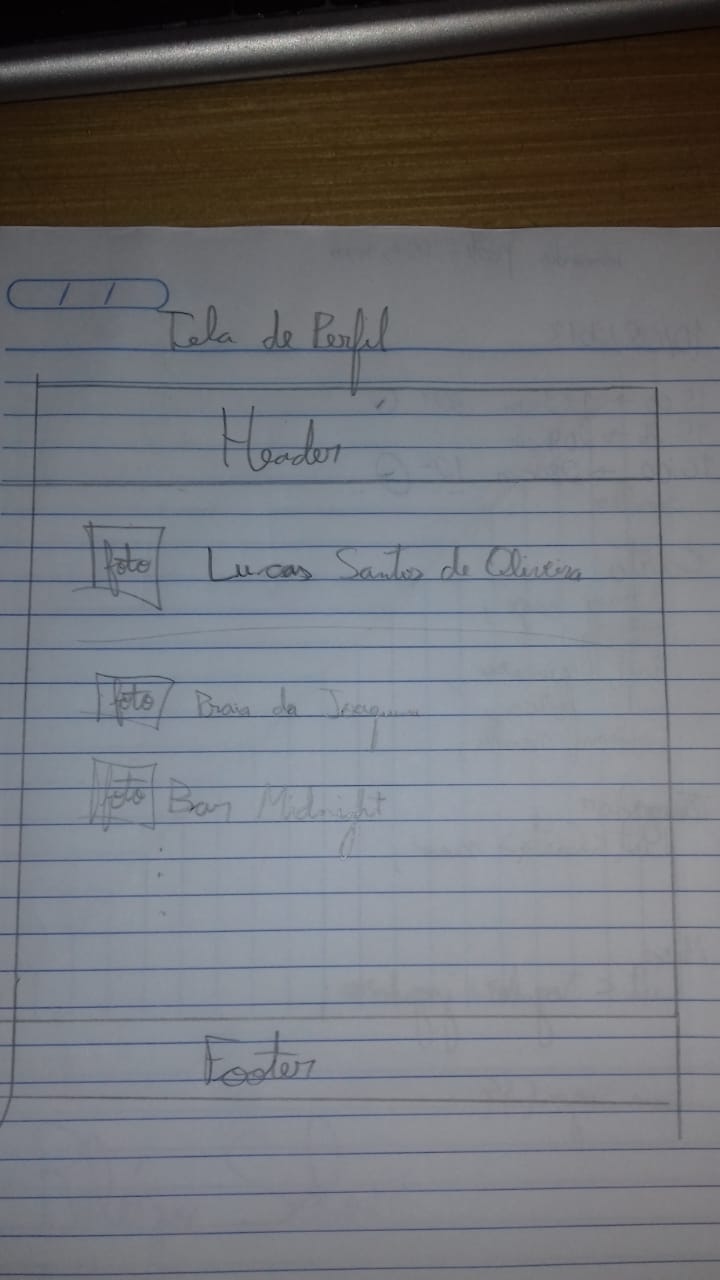 Tela de Perfil
Header
foto Lucas Santos de Oliveira
foto da
foto Bar Midnight
Footer